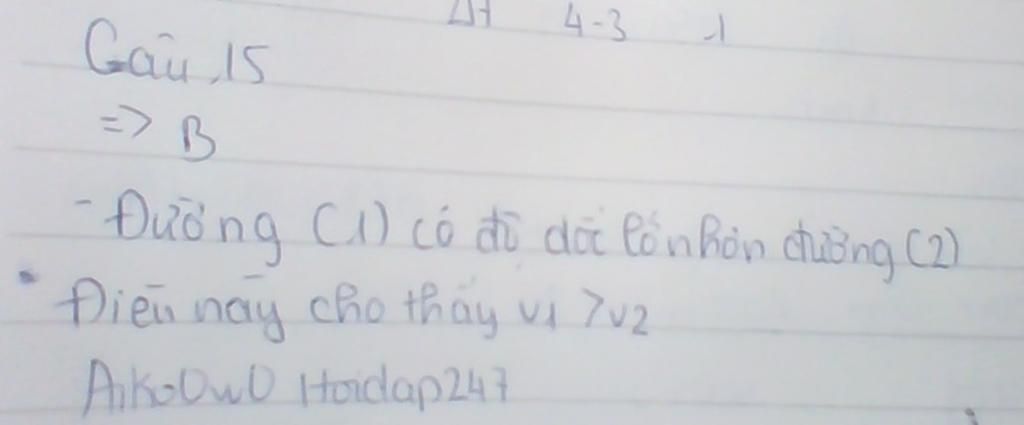 Δt 4-3 1
Câu 15
=> B
- Đường (1) có độ dốc lớn hơn đường (2)
Điều này cho thấy v1 > v2
AikoOwO Hoidap247